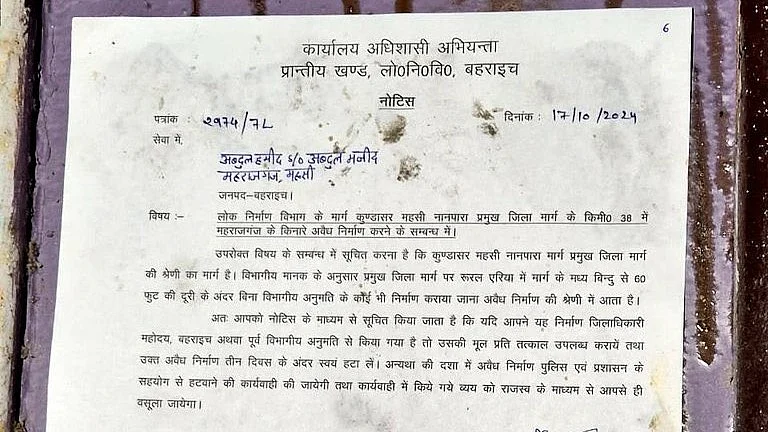 6
कार्यालय अधिशासी अभियन्ता
प्रान्तीय खण्ड, लो0नि0वि0, बहराइच
नोटिस
पत्रांक : २९७४/7L दिनांक : 17/10/2024
सेवा में,
अब्दुल हमीद S/O अब्दुल मजीद
महराजगंज, महसी
जनपद–बहराइच।
विषय :– लोक निर्माण विभाग के मार्ग कुण्डासर महसी नानपारा प्रमुख जिला मार्ग के किमी0 38 में
महराजगंज के किनारे अवैध निर्माण करने के सम्बन्ध में।
उपरोक्त विषय के सम्बन्ध में सूचित करना है कि कुण्डासर महसी नानपारा मार्ग प्रमुख जिला मार्ग
की श्रेणी का मार्ग है। विभागीय मानक के अनुसार प्रमुख जिला मार्ग पर रूरल एरिया में मार्ग के मध्य विन्दु से 60
फुट की दूरी के अंदर बिना विभागीय अनुमति के कोई भी निर्माण कराया जाना अवैध निर्माण की श्रेणी में आता है।
अतः आपको नोटिस के माध्यम से सूचित किया जाता है कि यदि आपने यह निर्माण जिलाधिकारी
महोदय, बहराइच अथवा पूर्व विभागीय अनुमति से किया गया है तो उसकी मूल प्रति तत्काल उपलब्ध करायें तथा
उक्त अवैध निर्माण तीन दिवस के अंदर स्वयं हटा लें। अन्यथा की दशा में अवैध निर्माण पुलिस एवं प्रशासन के
सहयोग से हटवाने की कार्यवाही की जायेगी तथा कार्यवाही में किये गये व्यय को राजस्व के माध्यम से आपसे ही
वसूला जायेगा।